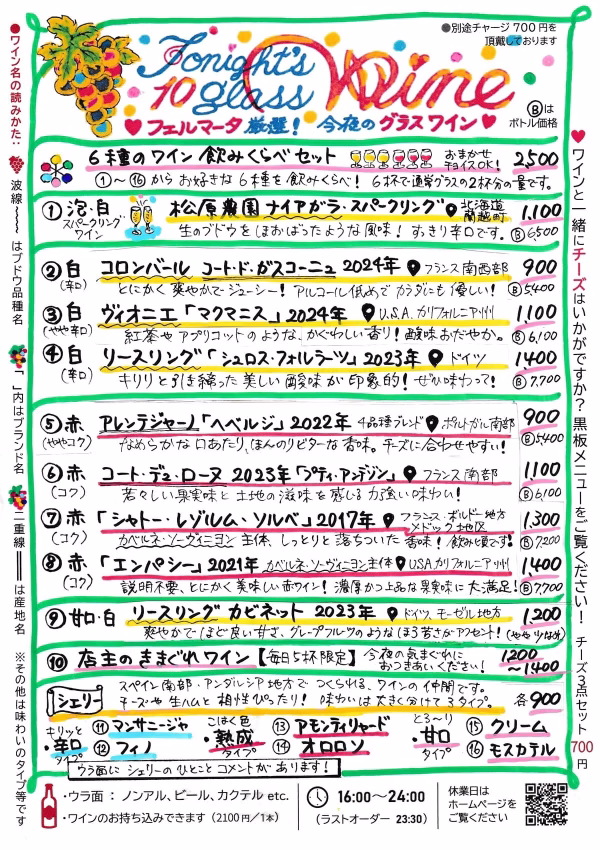 ●別途チャージ 700円を
頂戴しております
Tonight's
10 glass
Wine
♥フェルマータ厳選! 今夜のグラスワイン♥
Ⓑは
ボトル価格
6種のワイン飲みくらべセット おまかせ チョイスOK! 2,500
①~⑯からお好きな6種を飲みくらべ! 6杯で通常グラスの2杯分の量です。
①泡・白 松原農園 ナイアガラ・スパークリング 北海道 蘭越町 1,100
スパークリングワイン 生のブドウをほおばったような風味! すっきり辛口です。 Ⓑ6,500
②白 コロンバール コート・ド・ガスコーニュ 2024年 フランス南西部 900
(辛口) とにかく爽やかでジューシー! アルコール低めでカラダにも優しい! Ⓑ5,400
③白 ヴィオニエ「マクマニス」2024年 U.S.A. カリフォルニア州 1,100
(やや辛口) 紅茶やアプリコットのような、かぐわしい香り! 酸味おだやか。 Ⓑ6,100
④白 リースリング「シュロス・フォルラーツ」2023年 ドイツ 1,400
(辛口) キリリと引き締った美しい酸味が印象的! ぜひ味わって! Ⓑ7,700
⑤赤 アレンテジャーノ「ヘベルジ」2022年 4品種ブレンド ポルトガル南部 900
(ややコク) なめらかな口あたり、ほんのりビターな香味。チーズに合わせやすい! Ⓑ5,400
⑥赤 コート・デュ・ローヌ 2023年「プティ・アンデジン」 フランス南部 1,100
(コク) 若々しい果実味と土地の滋味を感じる力強い味わい! Ⓑ6,100
⑦赤 「シャトー・レゾルム・ソルベ」2017年 フランス・ボルドー地方 メドック地区 1,300
(コク) カベルネ・ソーヴィニヨン主体、しっとりと落ちついた香味! 飲み頃です! Ⓑ7,200
⑧赤 「エンパシー」2021年 カベルネ・ソーヴィニヨン主体 U.S.A.カリフォルニア州 1,400
(コク) 説明不要、とにかく美味しい赤ワイン! 濃厚かつ上品な果実味に大満足! Ⓑ7,700
⑨甘口・白 リースリング カビネット 2023年 ドイツ モーゼル地方 1,200
爽やかで(ほど良い甘さ、グレープフルーツのようなほろ苦さがアクセント! (やや少なめ)
⑩ 店主のきまぐれワイン【毎日5杯限定】 今夜の気まぐれに おつきあいください! 1,200
~1,400
シェリー スペイン南部・アンダルシア地方でつくられる、ワインの仲間です。
チーズや生ハムと相性ぴったり! 味わいは大きく分けて3タイプ。 各900
キリッと
・辛口
タイプ
⑪マンサニージャ
⑫フィノ
こはく色
・熟成
タイプ
⑬アモンティリャード
⑭オロロソ
とろ~り
・甘口
タイプ
⑮クリーム
⑯モスカテル
ウラ面にシェリーのひとことコメントがあります!
・ウラ面:ノンアル、ビール、カクテル etc.
・ワインのお持ち込みできます(2100円/1本)
16:00~24:00
(ラストオーダー 23:30)
休業日は
ホームページを
ご覧ください
●ワイン名の読みかた: 波線 はブドウ品種名 「 」内はブランド名 二重線 は産地名 ※その他は味わいのタイプ等です
♥ワインと一緒にチーズはいかがですか? 黒板メニューをご覧ください! チーズ3点セット 700円